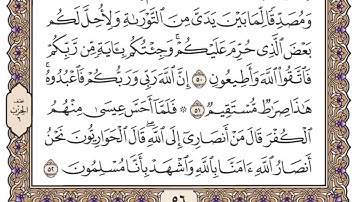 وَمُصَدِّقًا لِّمَا بَيْنَ يَدَىَّ مِنَ ٱلتَّوْرَىٰةِ وَلِأُحِلَّ لَكُم
بَعْضَ ٱلَّذِى حُرِّمَ عَلَيْكُمْ ۚ وَجِئْتُكُم بِـَٔايَةٍ مِّن رَّبِّكُمْ
فَٱتَّقُوا۟ ٱللَّهَ وَأَطِيعُونِ ۝٥٠ إِنَّ ٱللَّهَ رَبِّى وَرَبُّكُمْ فَٱعْبُدُوهُ ۗ
هَٰذَا صِرَٰطٌ مُّسْتَقِيمٌ ۝٥١ ۞ فَلَمَّآ أَحَسَّ عِيسَىٰ مِنْهُمُ
ٱلْكُفْرَ قَالَ مَنْ أَنصَارِىٓ إِلَى ٱللَّهِ ۖ قَالَ ٱلْحَوَارِيُّونَ نَحْنُ
أَنصَارُ ٱللَّهِ ءَامَنَّا بِٱللَّهِ وَٱشْهَدْ بِأَنَّا مُسْلِمُونَ ۝٥٢
٥٦